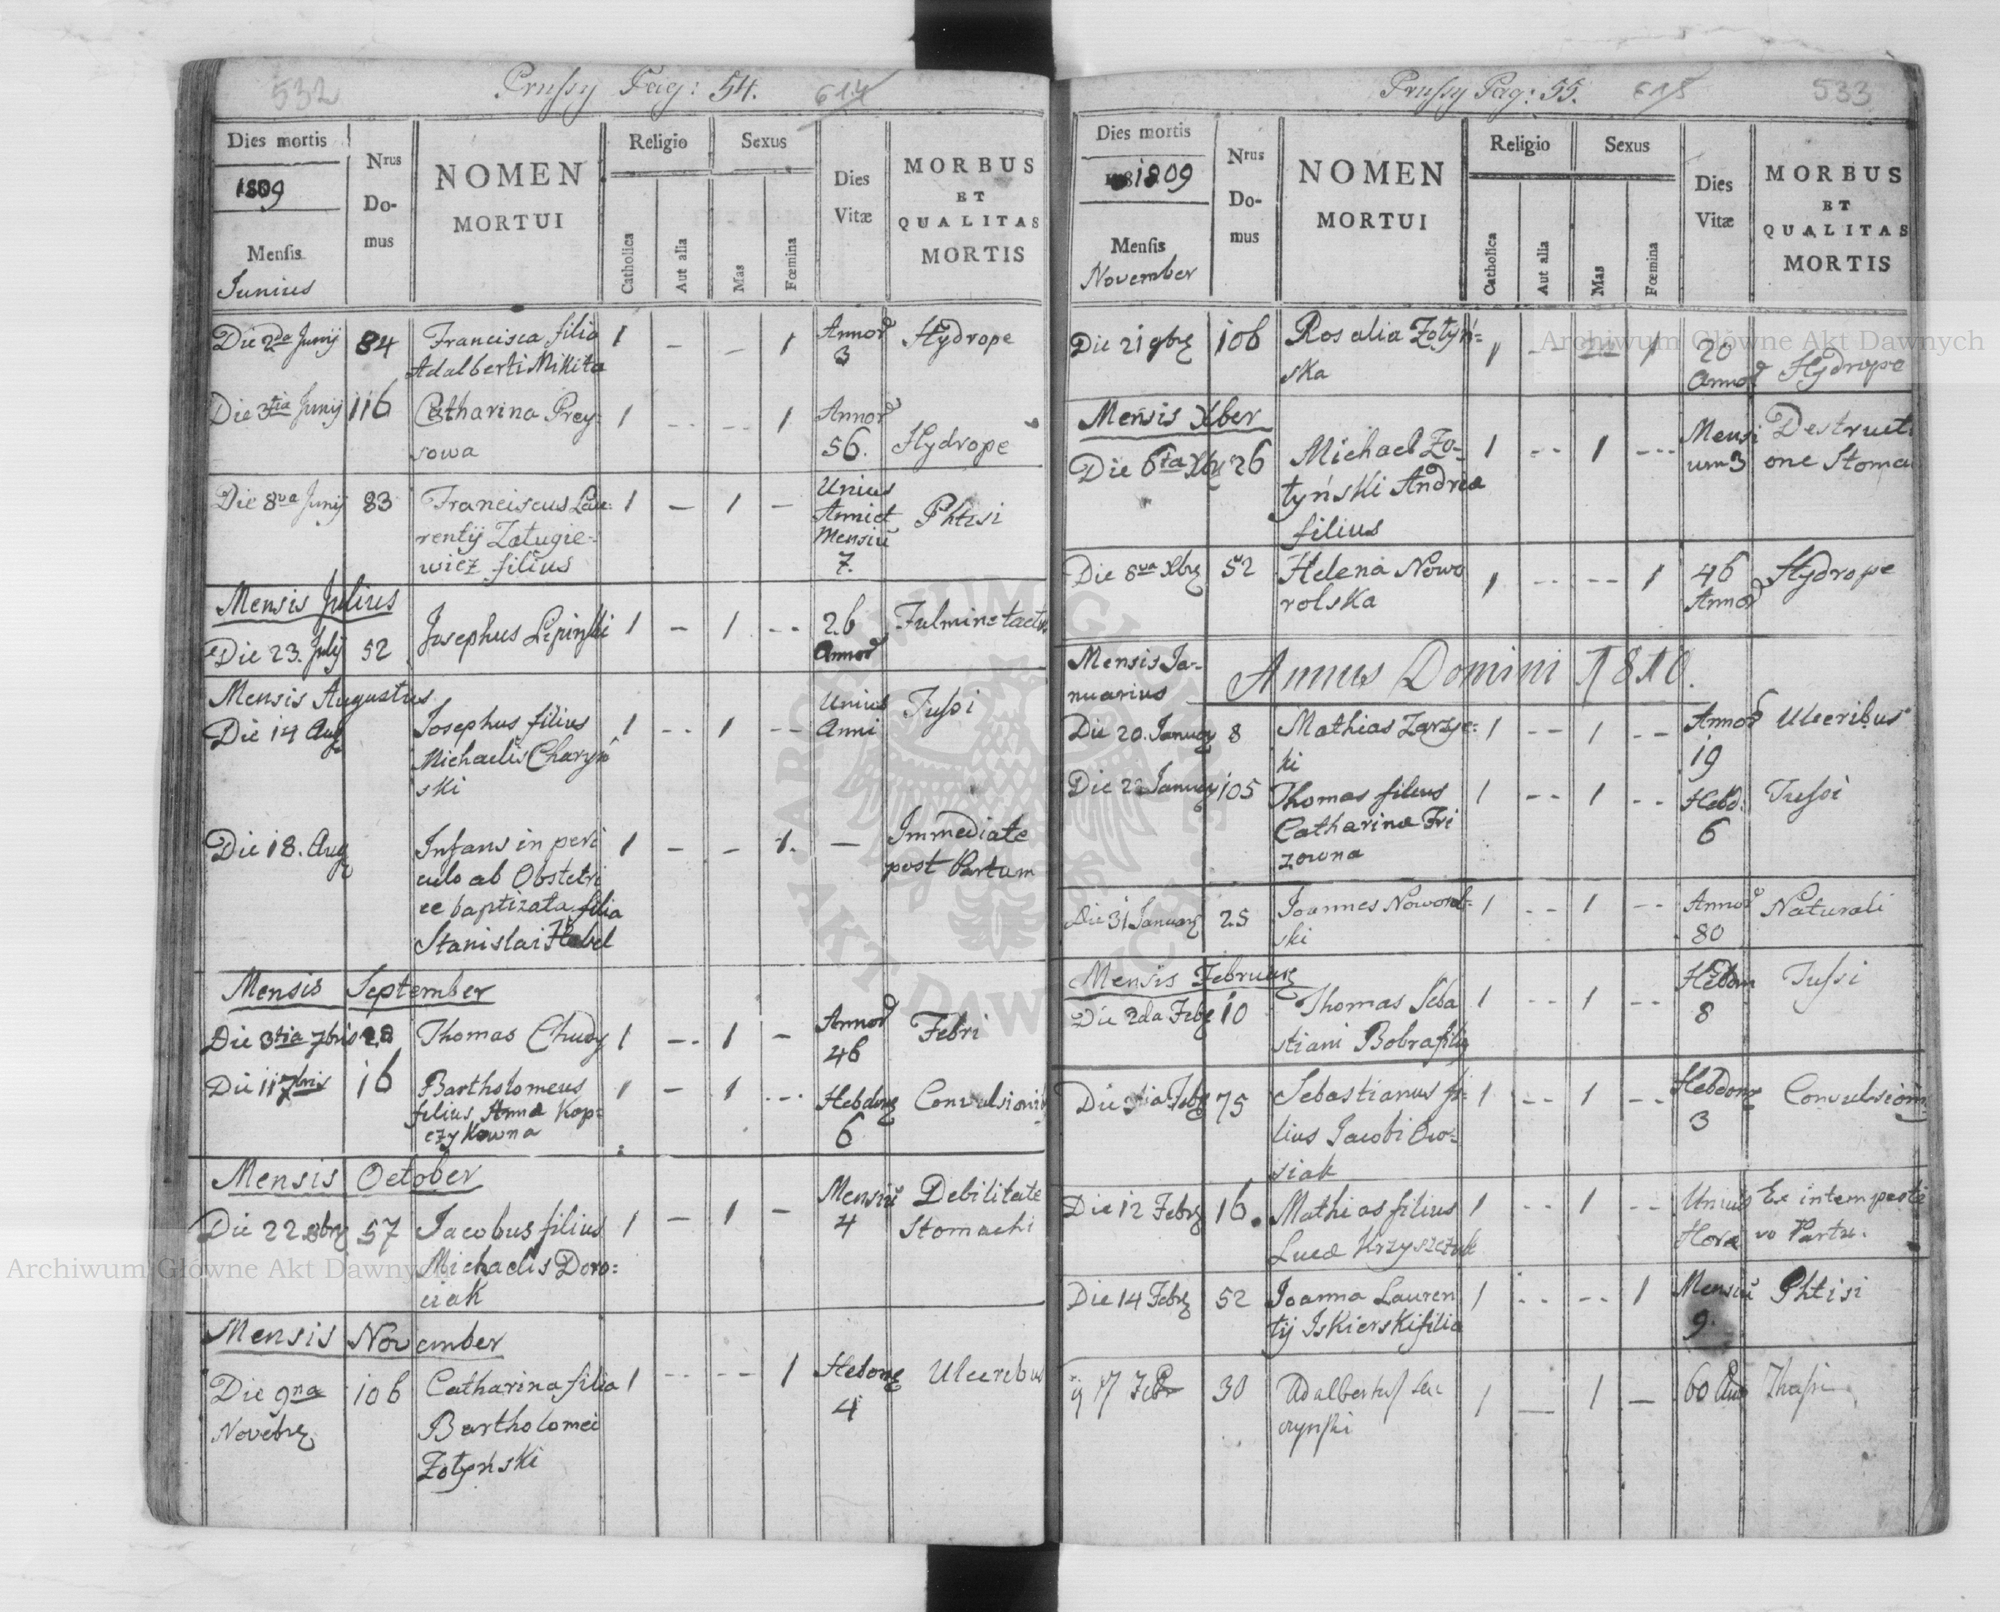 532
Prussy Pag: 54.
614
Dies mortis
1809
Mensis
Junius
Nrus Do-mus
NOMEN
MORTUI
Religio
Catholica
Aut alia
Sexus
Mas
Fœmina
Dies
Vitæ
MORBUS
ET
QUALITAS
MORTIS
Die 2da Junij 84 Francisca filia 1 - - 1 Annor Hydrope
Adalberti Mikita 3
Die 3tia Junij 116 Catharina Prey- 1 -- -- 1 Annor
sowa 56. Hydrope
Die 8va Junij 83 Franciscus Lau- 1 - 1 - Unius
rentij Zatugie- Anni et Phtisi
wicz filius Mensiū
7.
Mensis Julius
Die 23. July 52 Josephus Lipinski 1 - 1 -- 26 Fulmine tactus
Annor
Mensis Augustus
Die 14 Aug Josephus filius 1 -- 1 -- Unius Tussi
Michaelis Charyń Anni
ski
Die 18. Aug Infans in peri 1 - - 1. - Immediate
culo ab Obstetri post Partum
ce baptizata filia
Stanislai Habel
Mensis September
Die 3tia 7bris 28 Thomas Chudy 1 -- 1 - Annor Febri
46
Die 11 7bris 16 Bartholomeus 1 - 1 -- Hebdom
filius Anna Kop- 6
czykowna
Mensis October
Die 22 8bris 57 Jacobus filius 1 - 1 - Mensiū Debilitate
Michaelis Doro- 4 Stomachi
ciak
Mensis November
Die 9na 106 Catharina filia 1 -- -- 1 Hebdom Ulceribus
Novebr Bartholomei 4
Zotyński
Prussy Pag: 55.
615
533
Dies mortis
1809
Mensis
November
Nrus Do-mus
NOMEN
MORTUI
Religio
Catholica
Aut alia
Sexus
Mas
Fœmina
Dies
Vitæ
MORBUS
ET
QUALITAS
MORTIS
Die 21 9br 106 Rosalia Zotyń- 1 -- -- 1 20
ska Annor Hydrope
Mensis Xber
Die 6ta Xbr 26 Michael Zo- 1 -- 1 --- Mensi Destructi
tyński Andrea um 3 one Stoma
filius
Die 8va Xbr 52 Helena Nowo 1 -- -- 1 46 Hydrope
rolska Annor
Mensis Ja-
nuarius
Annus Domini 1810.
Die 20. January 8 Mathias Zarzyc- 1 -- 1 -- Annor Ulceribus
ki 19
Die 22 January 105 Thomas filius 1 -- 1 -- Hebd: Tussi
Catharina Fri 6
zowna
Die 31 January 25 Joannes Noworol- 1 -- 1 -- Annor Naturali
ski 80
Mensis February
Die 2da Febr 10 Thomas Seba 1 -- 1 -- Hebdom Tussi
stiani Bobra filiu 8
Febr 75 Sebastianus fi- 1 -- 1 -- Hebdom
lius Jacobi Owo- 3
siak
Die 12 Febr 16. Mathias filius 1 -- 1 -- Unius Ex intempesti
Luca Krzyszczuk Hora vo Partu.
Die 14 Febr 52 Joanna Lauren 1 -- -- 1 Mensiū Phtisi
tij Iskierski filia 9.
17 Febr 30 Adalbertus 1 - 1 - 60
Archiwum Główne Akt Dawnych
Archiwum Główne Akt Dawnych
ARCHIWUM GŁÓWNE AKT DAWNYCH